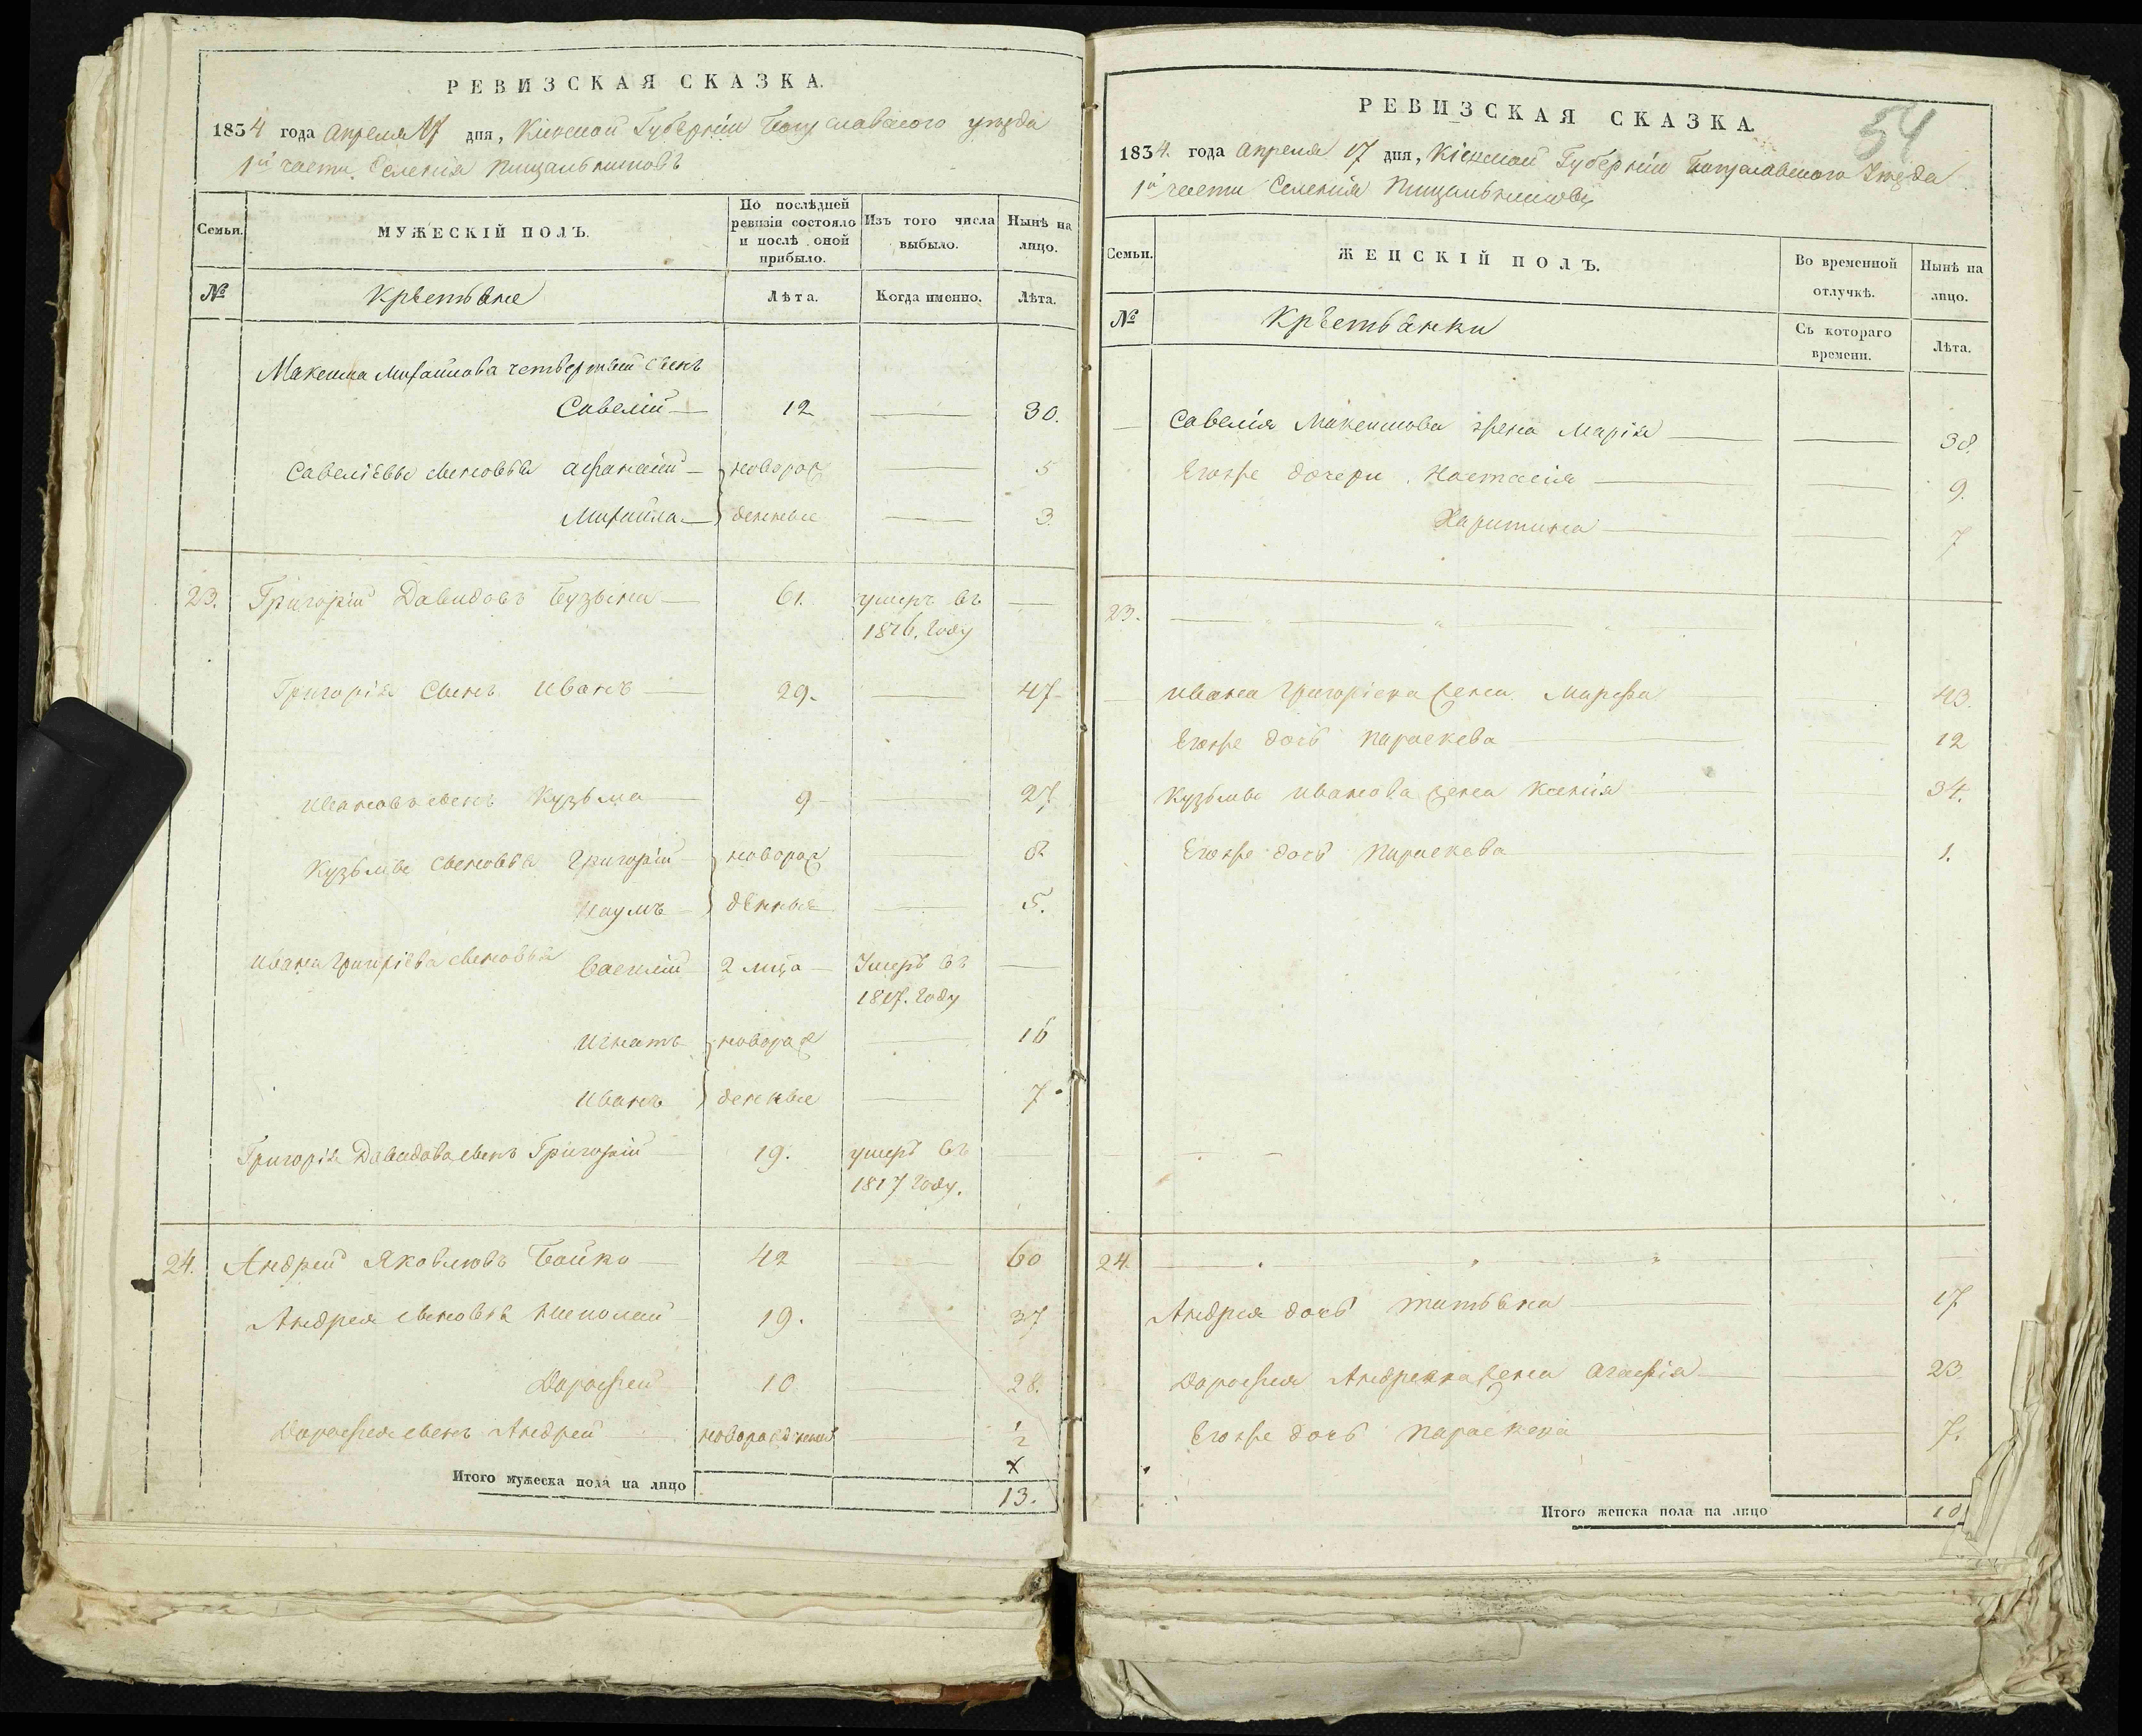 РЕВИЗСКАЯ СКАЗКА.
1834 года апреля 17 дня, Кіевской Губерніи Богуславского уезда
1й части Селенія Пищальниковъ
Семьи.
МУЖЕСКІЙ ПОЛЪ.
По послѣдней ревизіи состояло и послѣ оной прибыло.
Изъ того числа выбыло.
Нынѣ на лицо.
№
Крестьяне
Лѣта.
Когда именно.
Лѣта.
Максима Михайлова четвертый сынъ
Савелій 12 30.
Савеліевы сыновья Афанасій новорож 5
Михайла денные 3
23. Григорій Давидовъ Бузына 61. умеръ въ
1826. году
Григорія сынъ Иванъ 29. 47
Ивановъ сынъ Кузьма 9 27
Кузьмы сыновья Григорій новорож 8
Наумъ денные 5.
Ивана Григоріева сыновья Василій 2 мца Умеръ въ
1817. году
Игнатъ новорож 16
Иванъ денные 7
Григорія Давидова сынъ Григорій 19. умеръ въ
1817 году.
24. Андрей Яковлювъ Бойко 42 60
Андрея сыновья Николай 19. 37
Дорофей 10 28.
Дорофея сынъ Андрей новорожденный 1/2
Итого мужеска пола на лицо
13.
54
РЕВИЗСКАЯ СКАЗКА.
1834. года апреля 17 дня, Кіевской Губерніи Богуславского Уезда
1й части Селенія Пищальниковъ
Семьи.
ЖЕНСКІЙ ПОЛЪ.
Во временной отлучкѣ.
Нынѣ на лицо.
№
Крестьянки
Съ котораго времени.
Лѣта.
Савелія Максимова жена Марія 38.
Егожъ дочери Настасія 9.
Харитина 7
23.
Ивана Григоріева жена Марфа 43.
Егоже дочь Параскева 12
Кузьмы Иванова жена Ксенія 34.
Егоже дочь Параскева 1.
24.
Андрея дочь Татьяна 17
Дорофея Андреева жена Агафія 23
Егоже дочь Параскева 7.
Итого женска пола на лицо
10